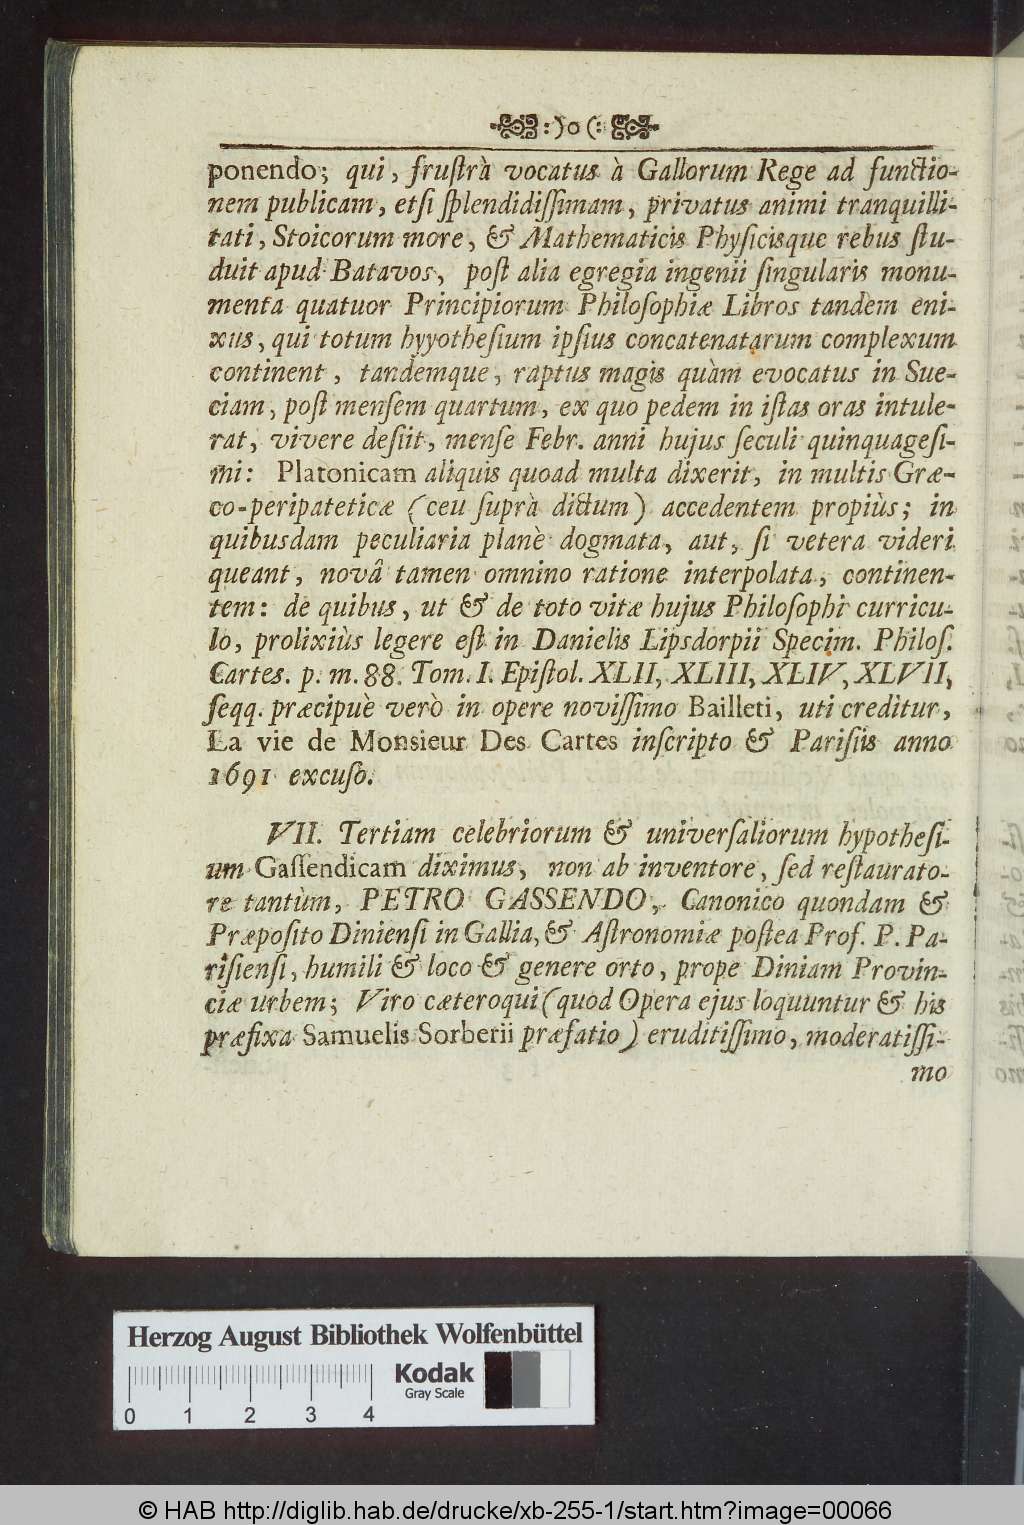 :)o(:
ponendo; qui, fruſtrà vocatus à Gallorum Rege ad functio-
nem publicam, etſi ſplendidiſſimam, privatus animi tranquilli-
tati, Stoicorum more, & Mathematicis Phyſicisque rebus ſtu-
duit apud Batavos, poſt alia egregia ingenii ſingularis monu-
menta quatuor Principiorum Philoſophiæ Libros tandem eni-
xus, qui totum hyyotheſium ipſius concatenatarum complexum
continent, tandemque, raptus magis quàm evocatus in Sue-
ciam, poſt menſem quartum, ex quo pedem in iſtas oras intule-
rat, vivere deſiit, menſe Febr. anni hujus ſeculi quinquageſi-
mi: Platonicam aliquis quoad multa dixerit, in multis Græ-
co-peripateticæ (ceu ſuprà dictum) accedentem propiùs; in
quibusdam peculiaria planè dogmata, aut, ſi vetera videri
queant, novâ tamen omnino ratione interpolata, continen-
tem: de quibus, ut & de toto vitæ hujus Philoſophi curricu-
lo, prolixiùs legere eſt in Danielis Lipsdorpii Specim. Philoſ.
Cartes. p. m. 88. Tom. I. Epiſtol. XLII, XLIII, XLIV, XLVII,
ſeqq. præcipuè verò in opere noviſſimo Bailleti, uti creditur,
La vie de Monsieur Des Cartes inſcripto & Pariſiis anno
1691 excuſo.
VII. Tertiam celebriorum & univerſaliorum hypotheſi-
um Gaſſendicam diximus, non ab inventore, ſed reſtaurato-
re tantùm, PETRO GASSENDO, Canonico quondam &
Præpoſito Dinienſi in Gallia, & Aſtronomiæ poſtea Prof. P. Pa-
riſienſi, humili & loco & genere orto, prope Diniam Provin-
ciæ urbem; Viro cæteroqui (quod Opera ejus loquuntur & his
præfixa Samuelis Sorberii præfatio) eruditiſſimo, moderatiſſi-
mo
Herzog August Bibliothek Wolfenbüttel
Kodak
Gray Scale
0 1 2 3 4
© HAB http://diglib.hab.de/drucke/xb-255-1/start.htm?image=00066